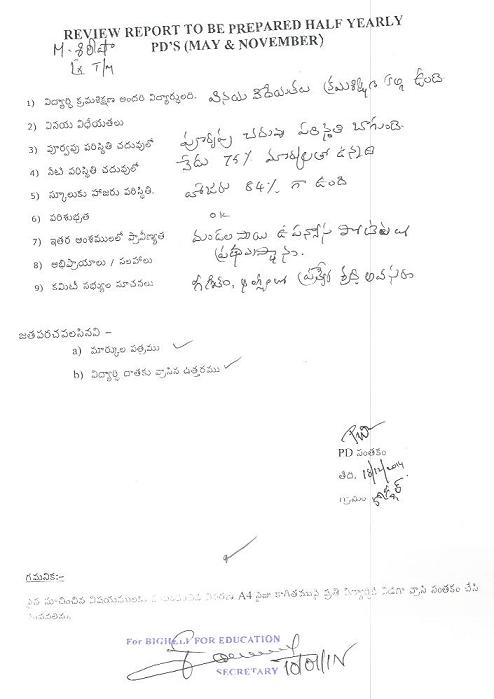 REVIEW REPORT TO BE PREPARED HALF YEARLY
PD'S (MAY & NOVEMBER)
M. శిరీషా
T/M
1) విద్యార్థి క్రమశిక్షణ అందరి విద్యార్థులది. వినయ విధేయతలు క్రమశిక్షణ కల్గి ఉంది
2) వినయ విధేయతలు
3) పూర్వపు పరిస్థితి చదువులో పూర్వపు చదువు పరిస్థితి బాగుంది.
4) నేటి పరిస్థితి చదువులో నేడు 75% మార్కులతో ఉన్నది
5) స్కూలుకు హాజరు పరిస్థితి. హాజరు 84% గా ఉంది
6) పరిశుభ్రత ok
7) ఇతర అంశములలో ప్రావీణ్యత మండల స్థాయి ఉపన్యాస పోటీలలో
ప్రథమస్థానం.
8) అభిప్రాయాలు / సలహాలు
9) కమిటీ సభ్యుల సూచనలు గణితం, ఇంగ్లీషులో ప్రత్యేక శ్రద్ధ అవసరం
జతపరచవలసినవి –
a) మార్కుల పత్రము ✓
b) విద్యార్థి దాతకు వ్రాసిన ఉత్తరము ✓
PD సంతకం
తేది. 18/12/2014
గ్రామం
గమనిక:-
పైన సూచించిన విషయములను A4 సైజు కాగితముపై ప్రతి విద్యార్థికి విడిగా వ్రాసి సంతకం చేసి
For BIGHELP FOR EDUCATION
SECRETARY 10/01/15